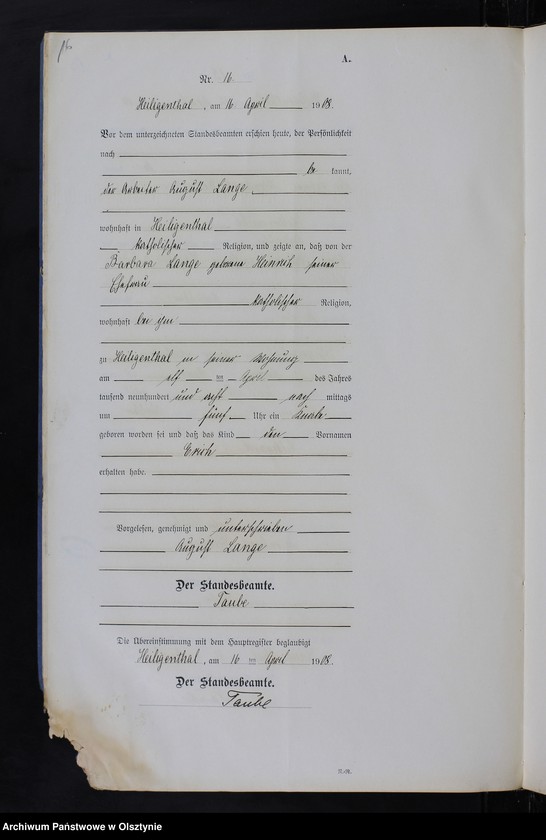 16
A.
Nr. 16
Heiligenthal, am 16 April 1908.
Vor dem unterzeichneten Standesbeamten erschien heute, der Persönlichkeit
nach
be kannt,
der Arbeiter August Lange,
wohnhaft in Heiligenthal
katholischer Religion, und zeigte an, daß von der
Barbara Lange geborene Heinrich seiner
Ehefrau
katholischer Religion,
wohnhaft bei ihm
zu Heiligenthal in seiner Wohnung
am elf ten April des Jahres
tausend neunhundert und acht nach mittags
um fünf Uhr ein Knabe
geboren worden sei und daß das Kind den Vornamen
Erich
erhalten habe.
Vorgelesen, genehmigt und unterschrieben
August Lange
Der Standesbeamte.
Taube
Die Übereinstimmung mit dem Hauptregister beglaubigt
Heiligenthal, am 16 ten April 1908.
Der Standesbeamte.
Taube
Archiwum Państwowe w Olsztynie